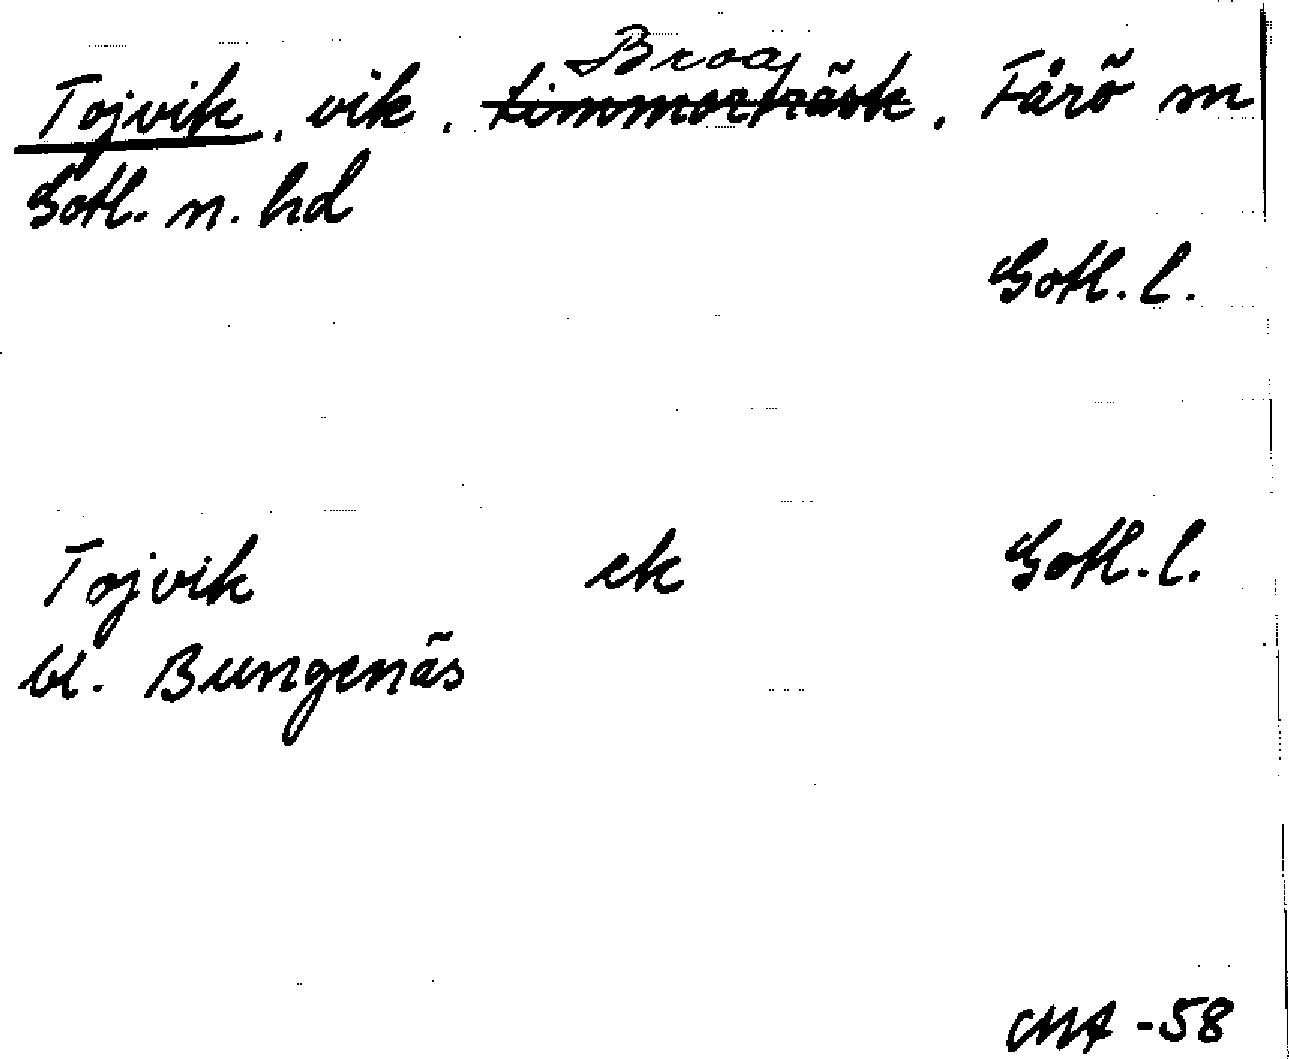 Broa
Tojvik, vik, Limmorträsk, Fårö sn
Gotl. n. hd
Gotl. l.
Tojvik ek Gotl. l.
bl. Bungenäs
MA -58